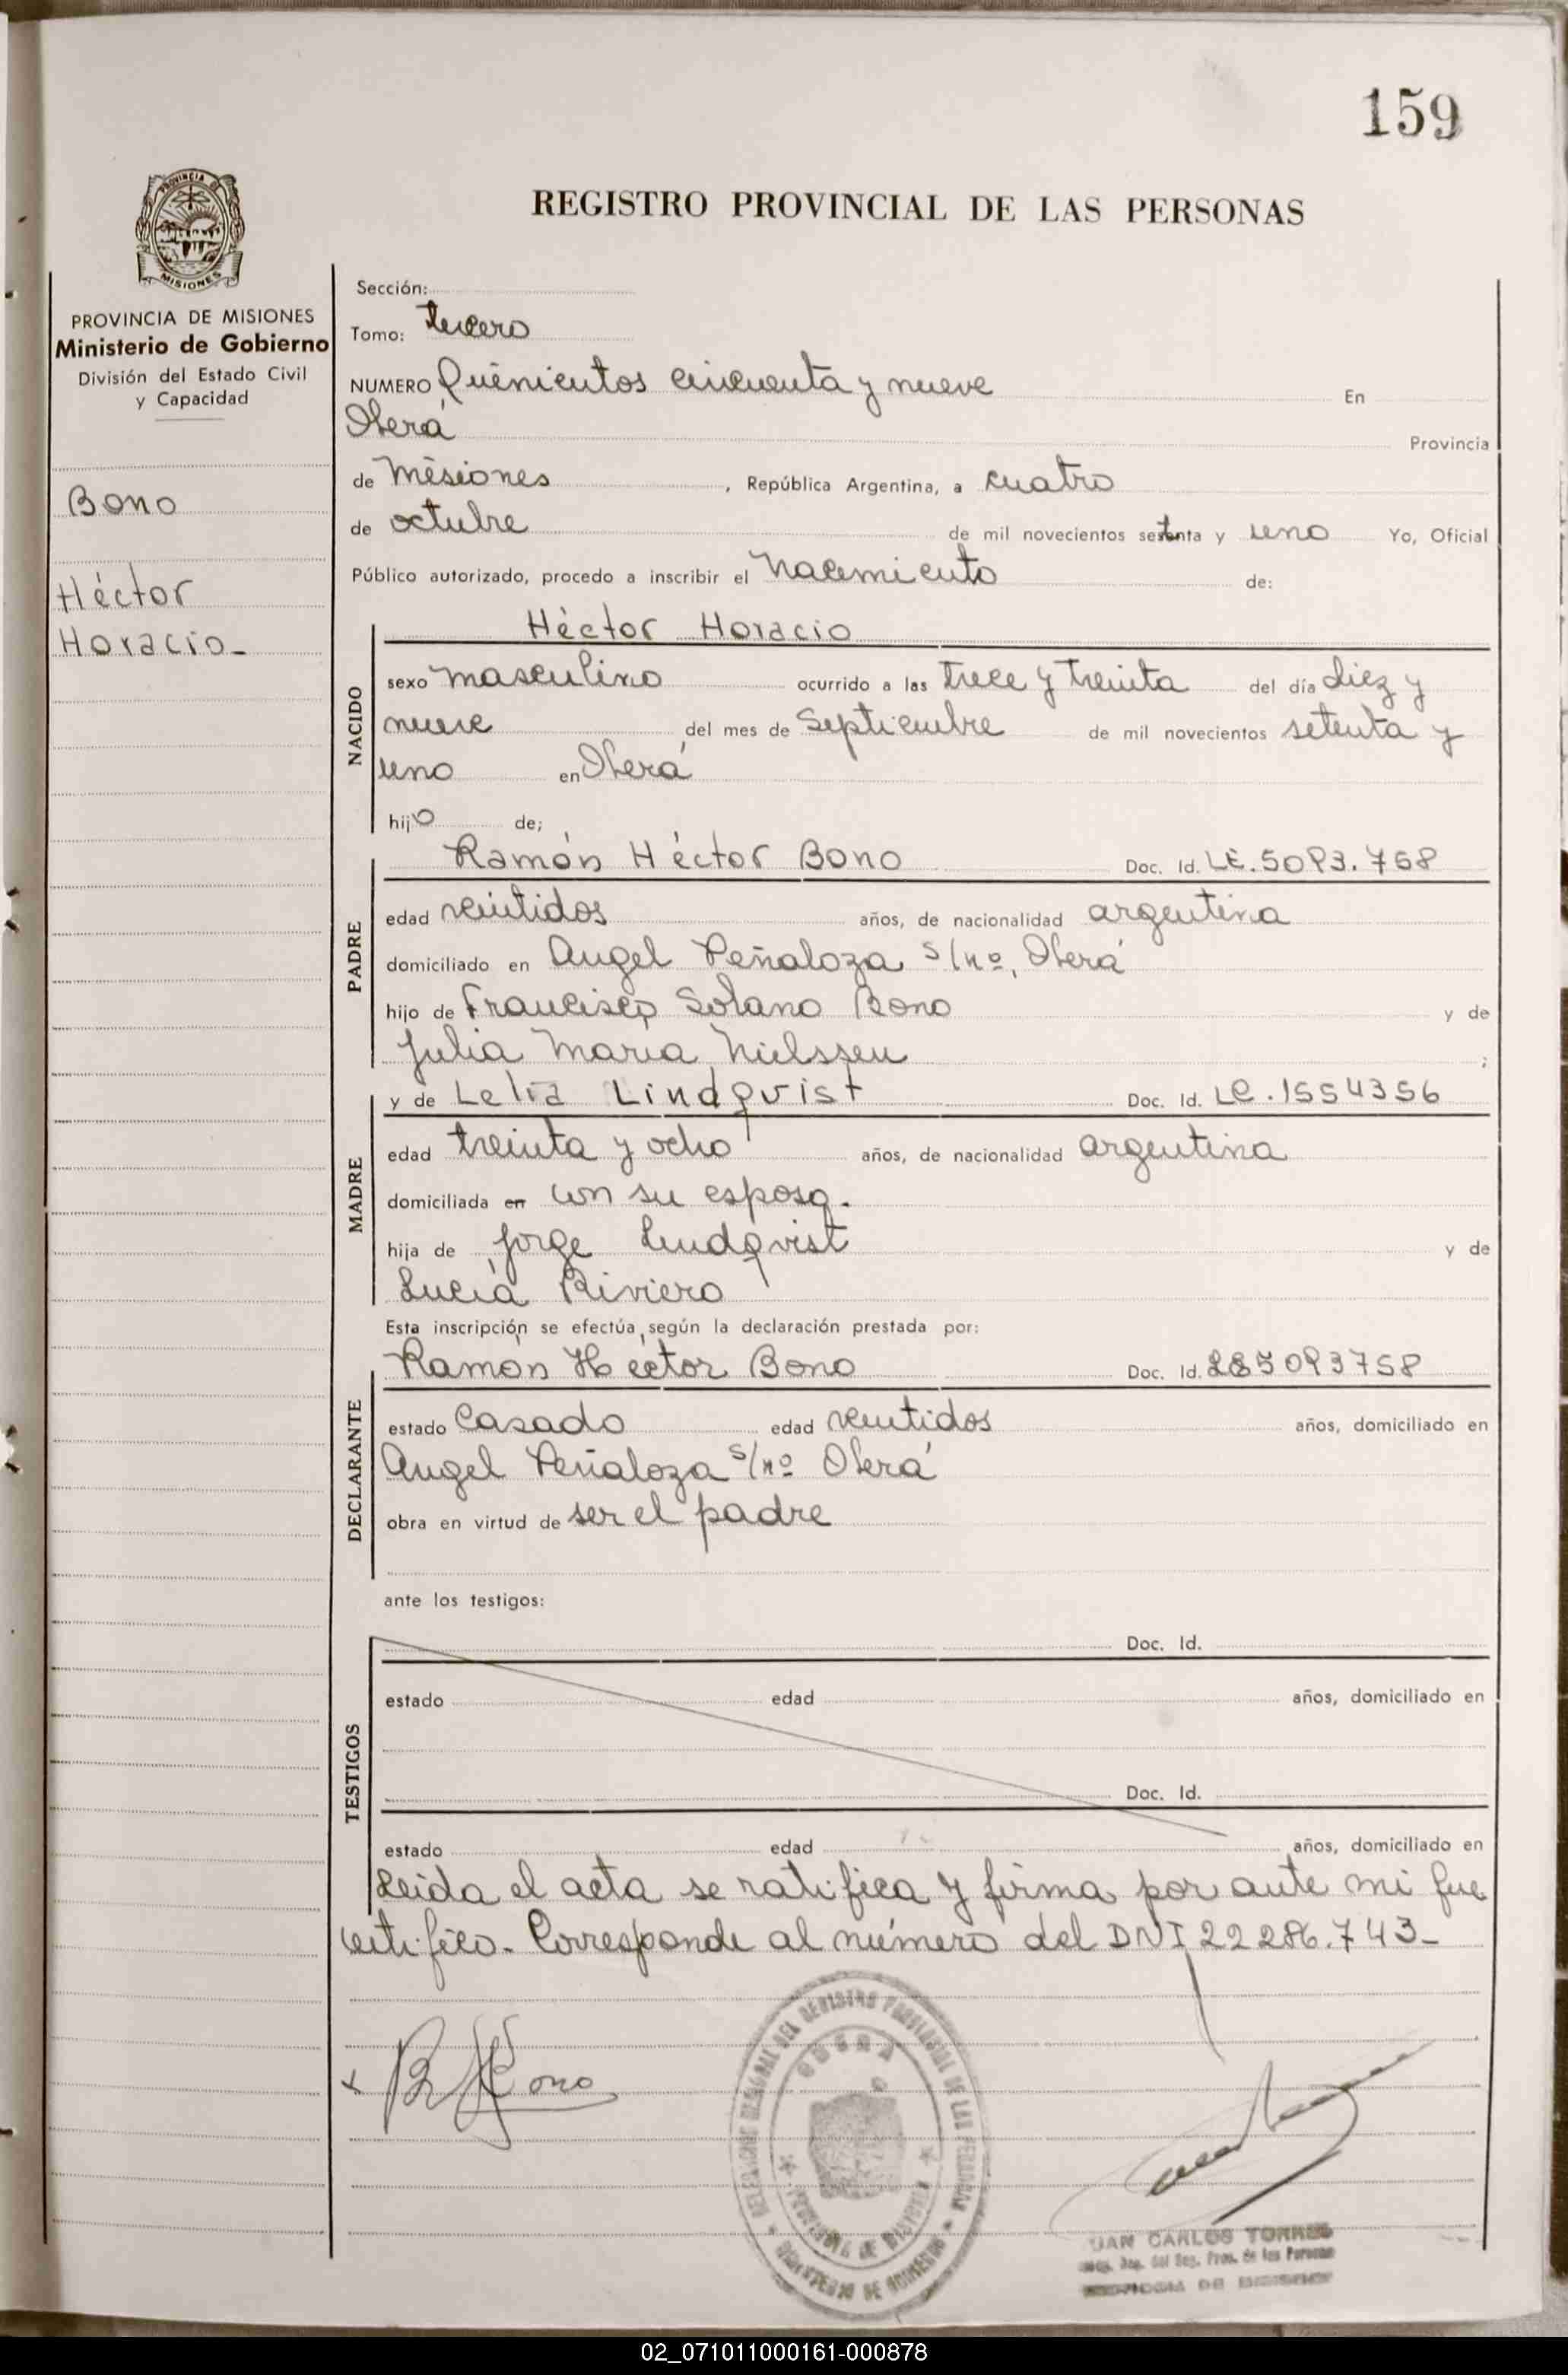 159
REGISTRO PROVINCIAL DE LAS PERSONAS
PROVINCIA DE
MISIONES
PROVINCIA DE MISIONES
Ministerio de Gobierno
División del Estado Civil
y Capacidad
Bono
Héctor
Horacio-
Sección:
Tomo: tercero
NUMERO Quinientos cincuenta y nueve En
Oberá Provincia
de Misiones, República Argentina, a cuatro
de octubre de mil novecientos setenta y uno Yo, Oficial
Público autorizado, procedo a inscribir el nacimiento de:
Héctor Horacio
NACIDO
sexo masculino ocurrido a las trece y treinta del día diez y
nueve del mes de septiembre de mil novecientos setenta y
uno en Oberá
hijo de;
Ramón Héctor Bono Doc. Id. LE. 5093.768
PADRE
edad veintidos años, de nacionalidad argentina
domiciliado en Angel Peñaloza s/nº, Oberá
hijo de Francisco Solano Bono y de
Julia Maria Nielssen ;
y de Lelia Lindqvist Doc. Id. LC. 1554356
MADRE
edad treinta y ocho años, de nacionalidad argentina
domiciliada en con su esposo.
hija de Jorge Lindqvist y de
Lucía Riviero
Esta inscripción se efectúa según la declaración prestada por:
Ramón Héctor Bono Doc. Id. LE5093758
DECLARANTE
estado casado edad veintidos años, domiciliado en
Angel Peñaloza s/nº Oberá
obra en virtud de ser el padre
ante los testigos:
Doc. Id.
TESTIGOS
estado edad años, domiciliado en
Doc. Id.
estado edad años, domiciliado en
Leida el acta se ratifica y firma por ante mi que
certifico. Corresponde al número del DNI 22286.743-
x Bono
DEL REGISTRO PROVINCIAL DE LAS PERSONAS
OBERA
PROVINCIA DE MISIONES
MINISTERIO DE GOBIERNO
JUAN CARLOS TORRES
del Reg. Prov. de las Personas
02_071011000161-000878